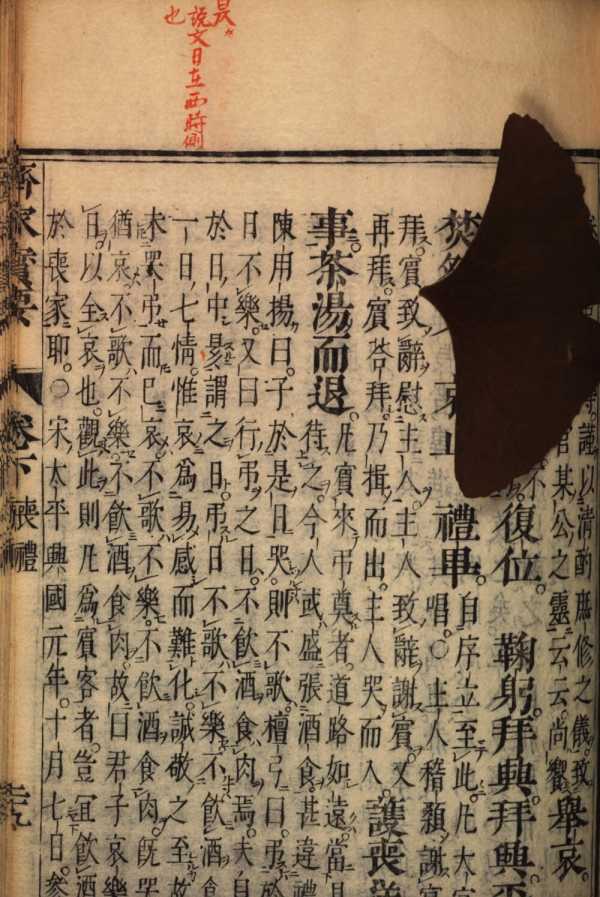 昃
説文日在西時側
也
謹以清酌庶修之儀。致
官某公之靈。云云。尚饗。舉哀。
復位。 鞠躬拜興拜興平
焚
禮畢。自序立至此。凡大
唱。〇主人稽顙謝賓
拜。賓致辭慰主人。主人致辭謝賓。又
再拜。賓答拜。乃揖而出。主人哭而入。護喪
事茶湯而退。凡賓來弔奠者。道路如遠。當具
待之。今人或盛張酒食。甚違禮
陳用揚曰。子於是日哭。則不歌。檀弓曰。弔於
日不樂。又曰行弔之日。不飲酒食肉焉。夫自
於日中昃謂之日。弔日不歌不樂不飲酒食
一日七情。惟哀爲易感而難化。誠敬之至故
未哭弔而已哀不歌不樂。不飲酒食肉。既哭
猶哀。不歌不樂。不飲酒食肉。故曰君子哀樂
日以全哀也。觀此則凡爲賓客者。豈冝飲酒
於喪家耶。〇宋太平興國元年。十月七日。參
齊家寶要 卷下 喪禮